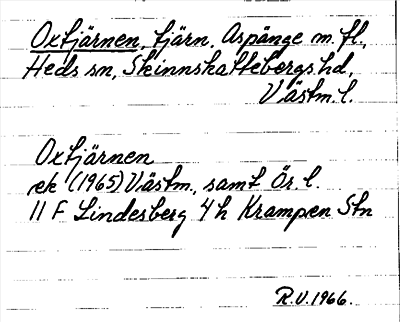 Oxtjärnen, tjärn, Aspänge m. fl.,
Heds sn, Skinnskattebergs hd,
Västm. l.
Oxtjärnen
ek (1965) Västm., samt Ör. l.
11 F Lindesberg 4 h Krampen Stn
R.V. 1966.